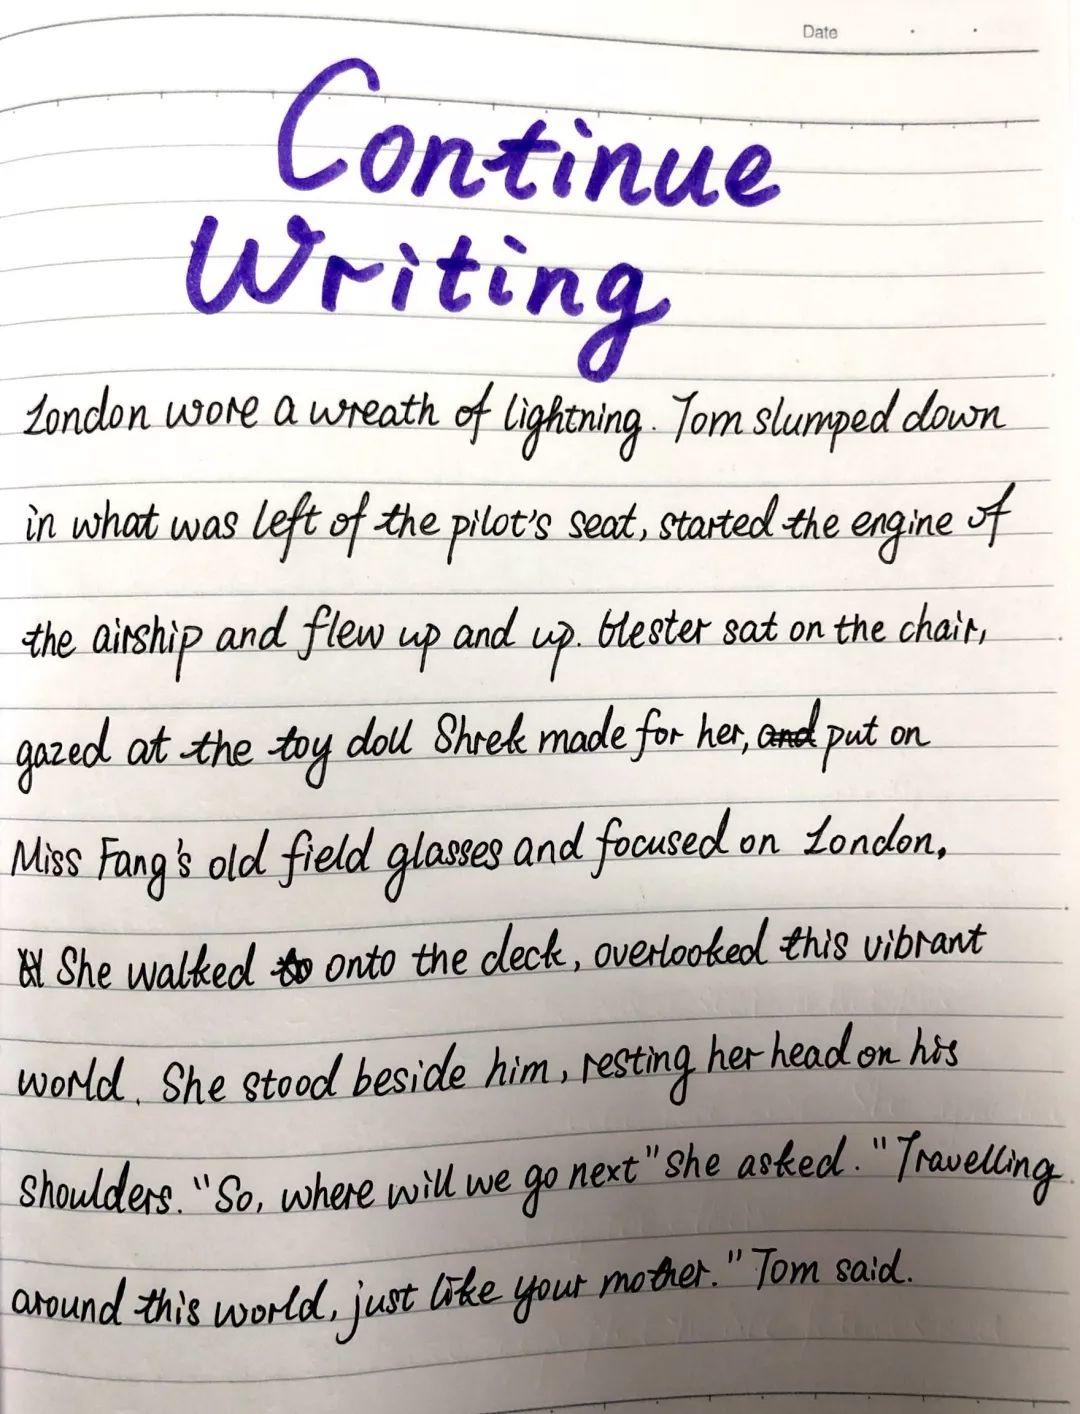 Date
Continue
Writing
London wore a wreath of lightning. Tom slumped down
in what was left of the pilot's seat, started the engine of
the airship and flew up and up. Hester sat on the chair,
gazed at the toy doll Shrek made for her, and put on
Miss Fang's old field glasses and focused on London.
She walked to onto the deck, overlooked this vibrant
world. She stood beside him, resting her head on his
shoulders. "So, where will we go next" she asked. "Travelling
around this world, just like your mother." Tom said.